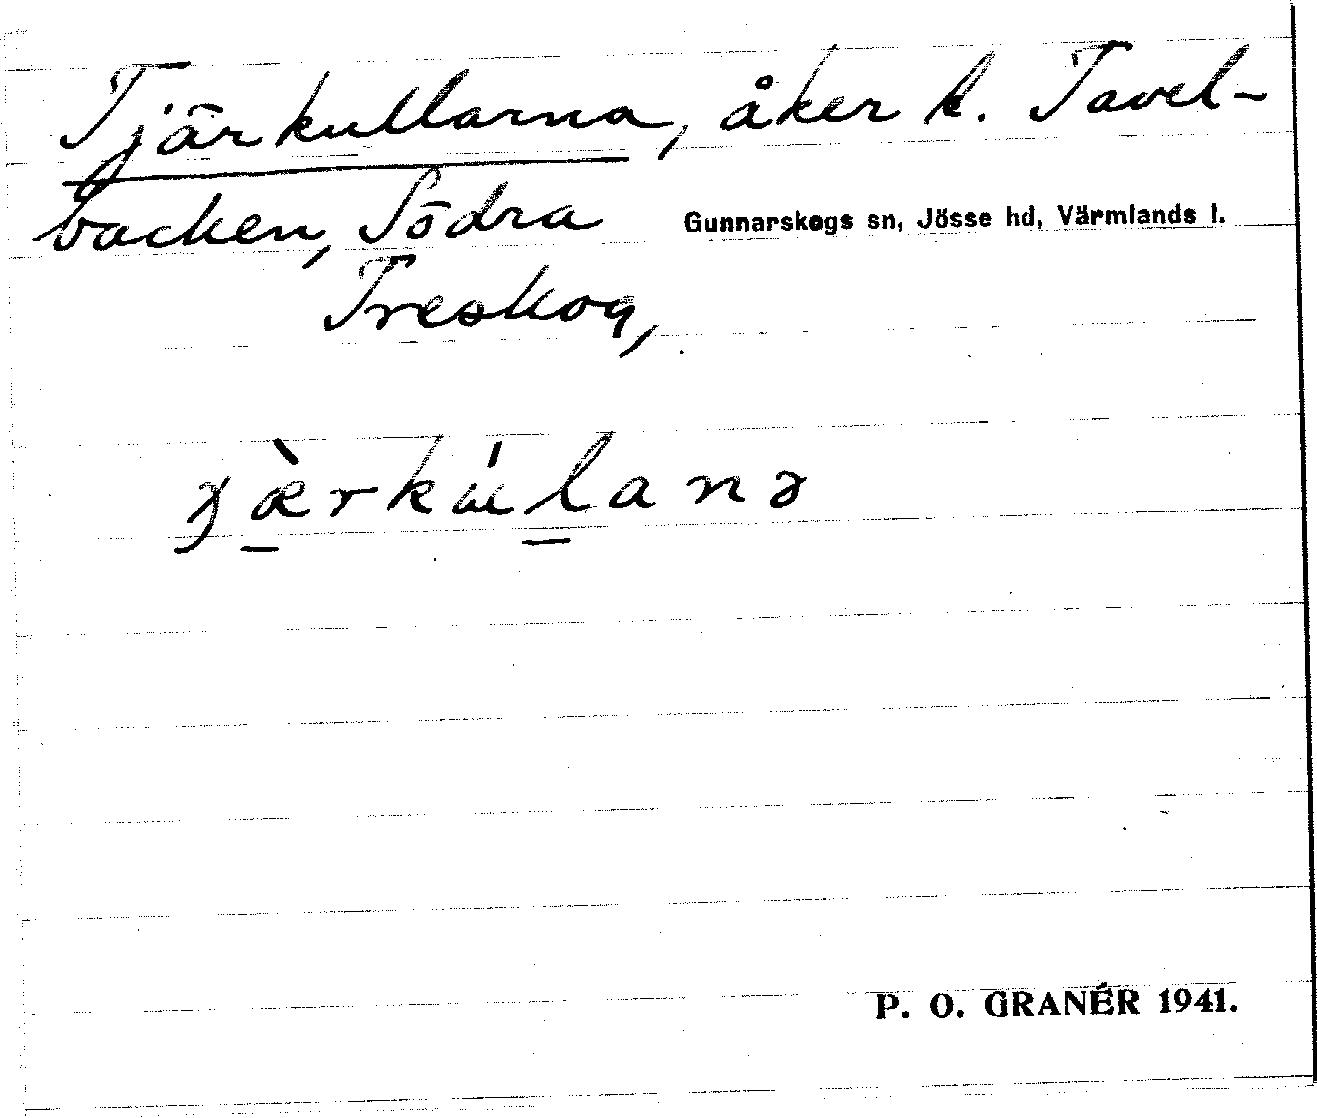 Tjärkullarna, åker h. Tavel-
backen, Södra
Gunnarskogs sn, Jösse hd, Värmlands l.
Treskog,
P. O. GRANÉR 1941.